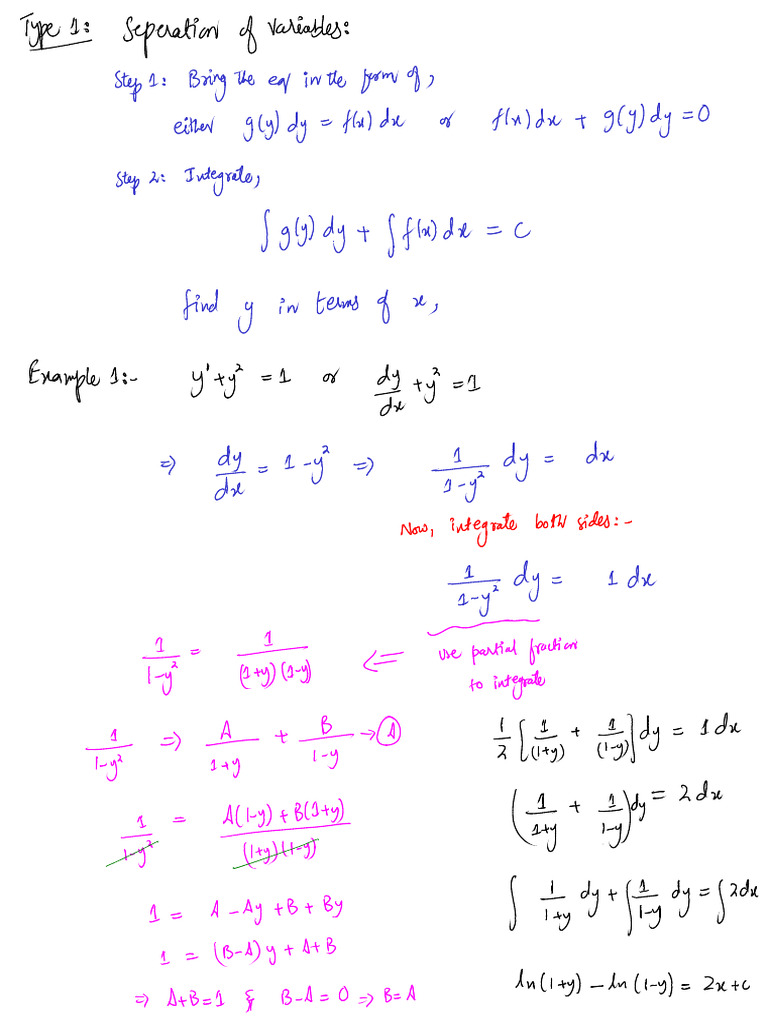 Type 1: Seperation of Variables:
Step 1: Bring the eqⁿ in the form of,
either g(y) dy = f(x) dx or f(x) dx + g(y) dy = 0
Step 2: Integrate,
∫ g(y) dy + ∫ f(x) dx = C
find y in terms of x,
Example 1:- y' + y² = 1 or dy/dx + y² = 1
⇒ dy/dx = 1 - y² ⇒ 1/(1-y²) dy = dx
Now, integrate both sides:-
1/(1-y²) dy = 1 dx
1/(1-y²) = 1/((1+y)(1-y)) ⇐ use partial fraction
to integrate
1/(1-y²) ⇒ A/(1+y) + B/(1-y) → Ⓐ
1/(1-y²) = (A(1-y) + B(1+y))/((1+y)(1-y))
1 = A - Ay + B + By
1 = (B-A)y + A+B
⇒ A+B=1 & B-A=0 ⇒ B=A
1/2 [1/(1+y) + 1/(1-y)] dy = 1 dx
(1/(1+y) + 1/(1-y)) dy = 2 dx
∫ 1/(1+y) dy + ∫ 1/(1-y) dy = ∫ 2dx
ln(1+y) - ln(1-y) = 2x+c